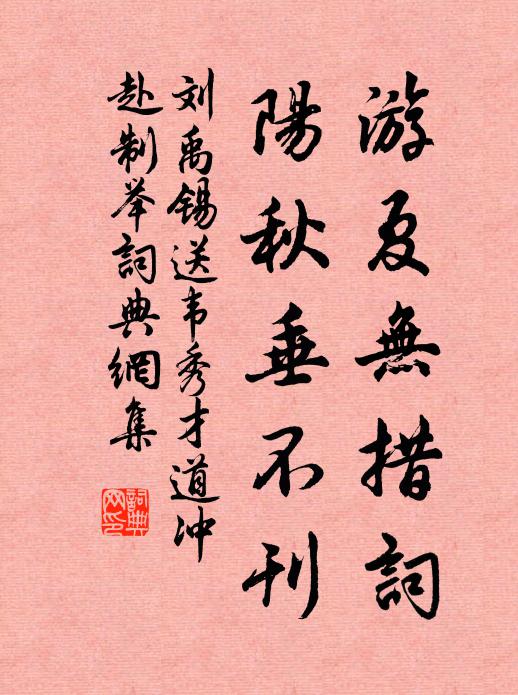 游夏無措詞
陽秋垂不刊
刘禹锡送韦秀才道冲
赴制举詞典網集
詞典网印